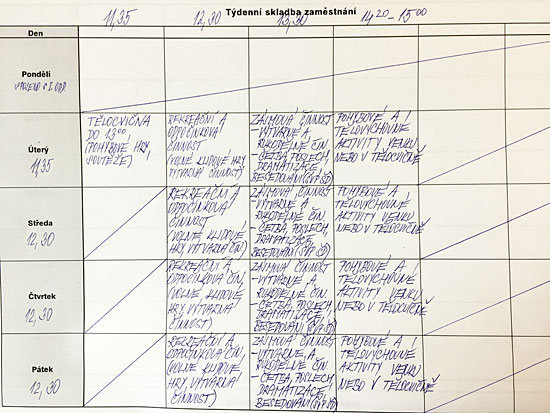 Týdenní skladba zaměstnání
11,35 12,30 13,30 14 20 - 15 00
Den
Pondělí
SPOJENO S I. ODD.
Úterý
11,35
TĚLOCVIČNA
DO 13 00,
(POHYBOVÉ HRY,
SOUTĚŽE)
REKREAČNÍ A
ODPOČINKOVÁ
ČINNOST
(VOLNÉ KLIDOVÉ HRY
VÝTVARNÁ ČINNOST)
ZÁJMOVÁ ČINNOST
- VÝTVARNÉ A
RUKODĚLNÉ ČIN.
- ČETBA, POSLECH,
DRAMATIZACE,
BESEDOVÁNÍ (ŠVP ŠD)
POHYBOVÉ A
TĚLOVÝCHOVNÉ
AKTIVITY VENKU
NEBO V TĚLOCVIČNĚ
Středa
12,30
REKREAČNÍ A
ODPOČINKOVÁ
ČINNOST
(VOLNÉ KLIDOVÉ
HRY VÝTVARNÁ ČIN.)
ZÁJMOVÁ ČINNOST
- VÝTVARNÉ A
RUKODĚLNÉ ČIN.
- ČETBA, POSLECH,
DRAMATIZACE,
BESEDOVÁNÍ (ŠVP ŠD)
POHYBOVÉ A
TĚLOVÝCHOVNÉ
AKTIVITY VENKU
NEBO V TĚLOCVIČNĚ
Čtvrtek
12,30
REKREAČNÍ A
ODPOČINKOVÁ ČIN.
(VOLNÉ KLIDOVÉ
HRY VÝTVARNÁ
ČINNOST)
ZÁJMOVÁ ČINNOST
- VÝTVARNÉ A
RUKODĚLNÉ ČIN.
- ČETBA, POSLECH,
DRAMATIZACE,
BESEDOVÁNÍ (ŠVP ŠD)
POHYBOVÉ A
TĚLOVÝCHOVNÉ
AKTIVITY VENKU
NEBO V TĚLOCVIČNĚ
Pátek
12,30
REKREAČNÍ A
ODPOČINKOVÁ ČIN.
(VOLNÉ KLIDOVÉ
HRY, VÝTVARNÁ
ČINNOST)
ZÁJMOVÁ ČINNOST
- VÝTVARNÉ, A
RUKODĚLNÉ ČIN.
- ČETBA, POSLECH,
DRAMATIZACE,
BESEDOVÁNÍ (ŠVP ŠD)
POHYBOVÉ A
TĚLOVÝCHOVNÉ
AKTIVITY VENKU
NEBO V TĚLOCVIČNĚ